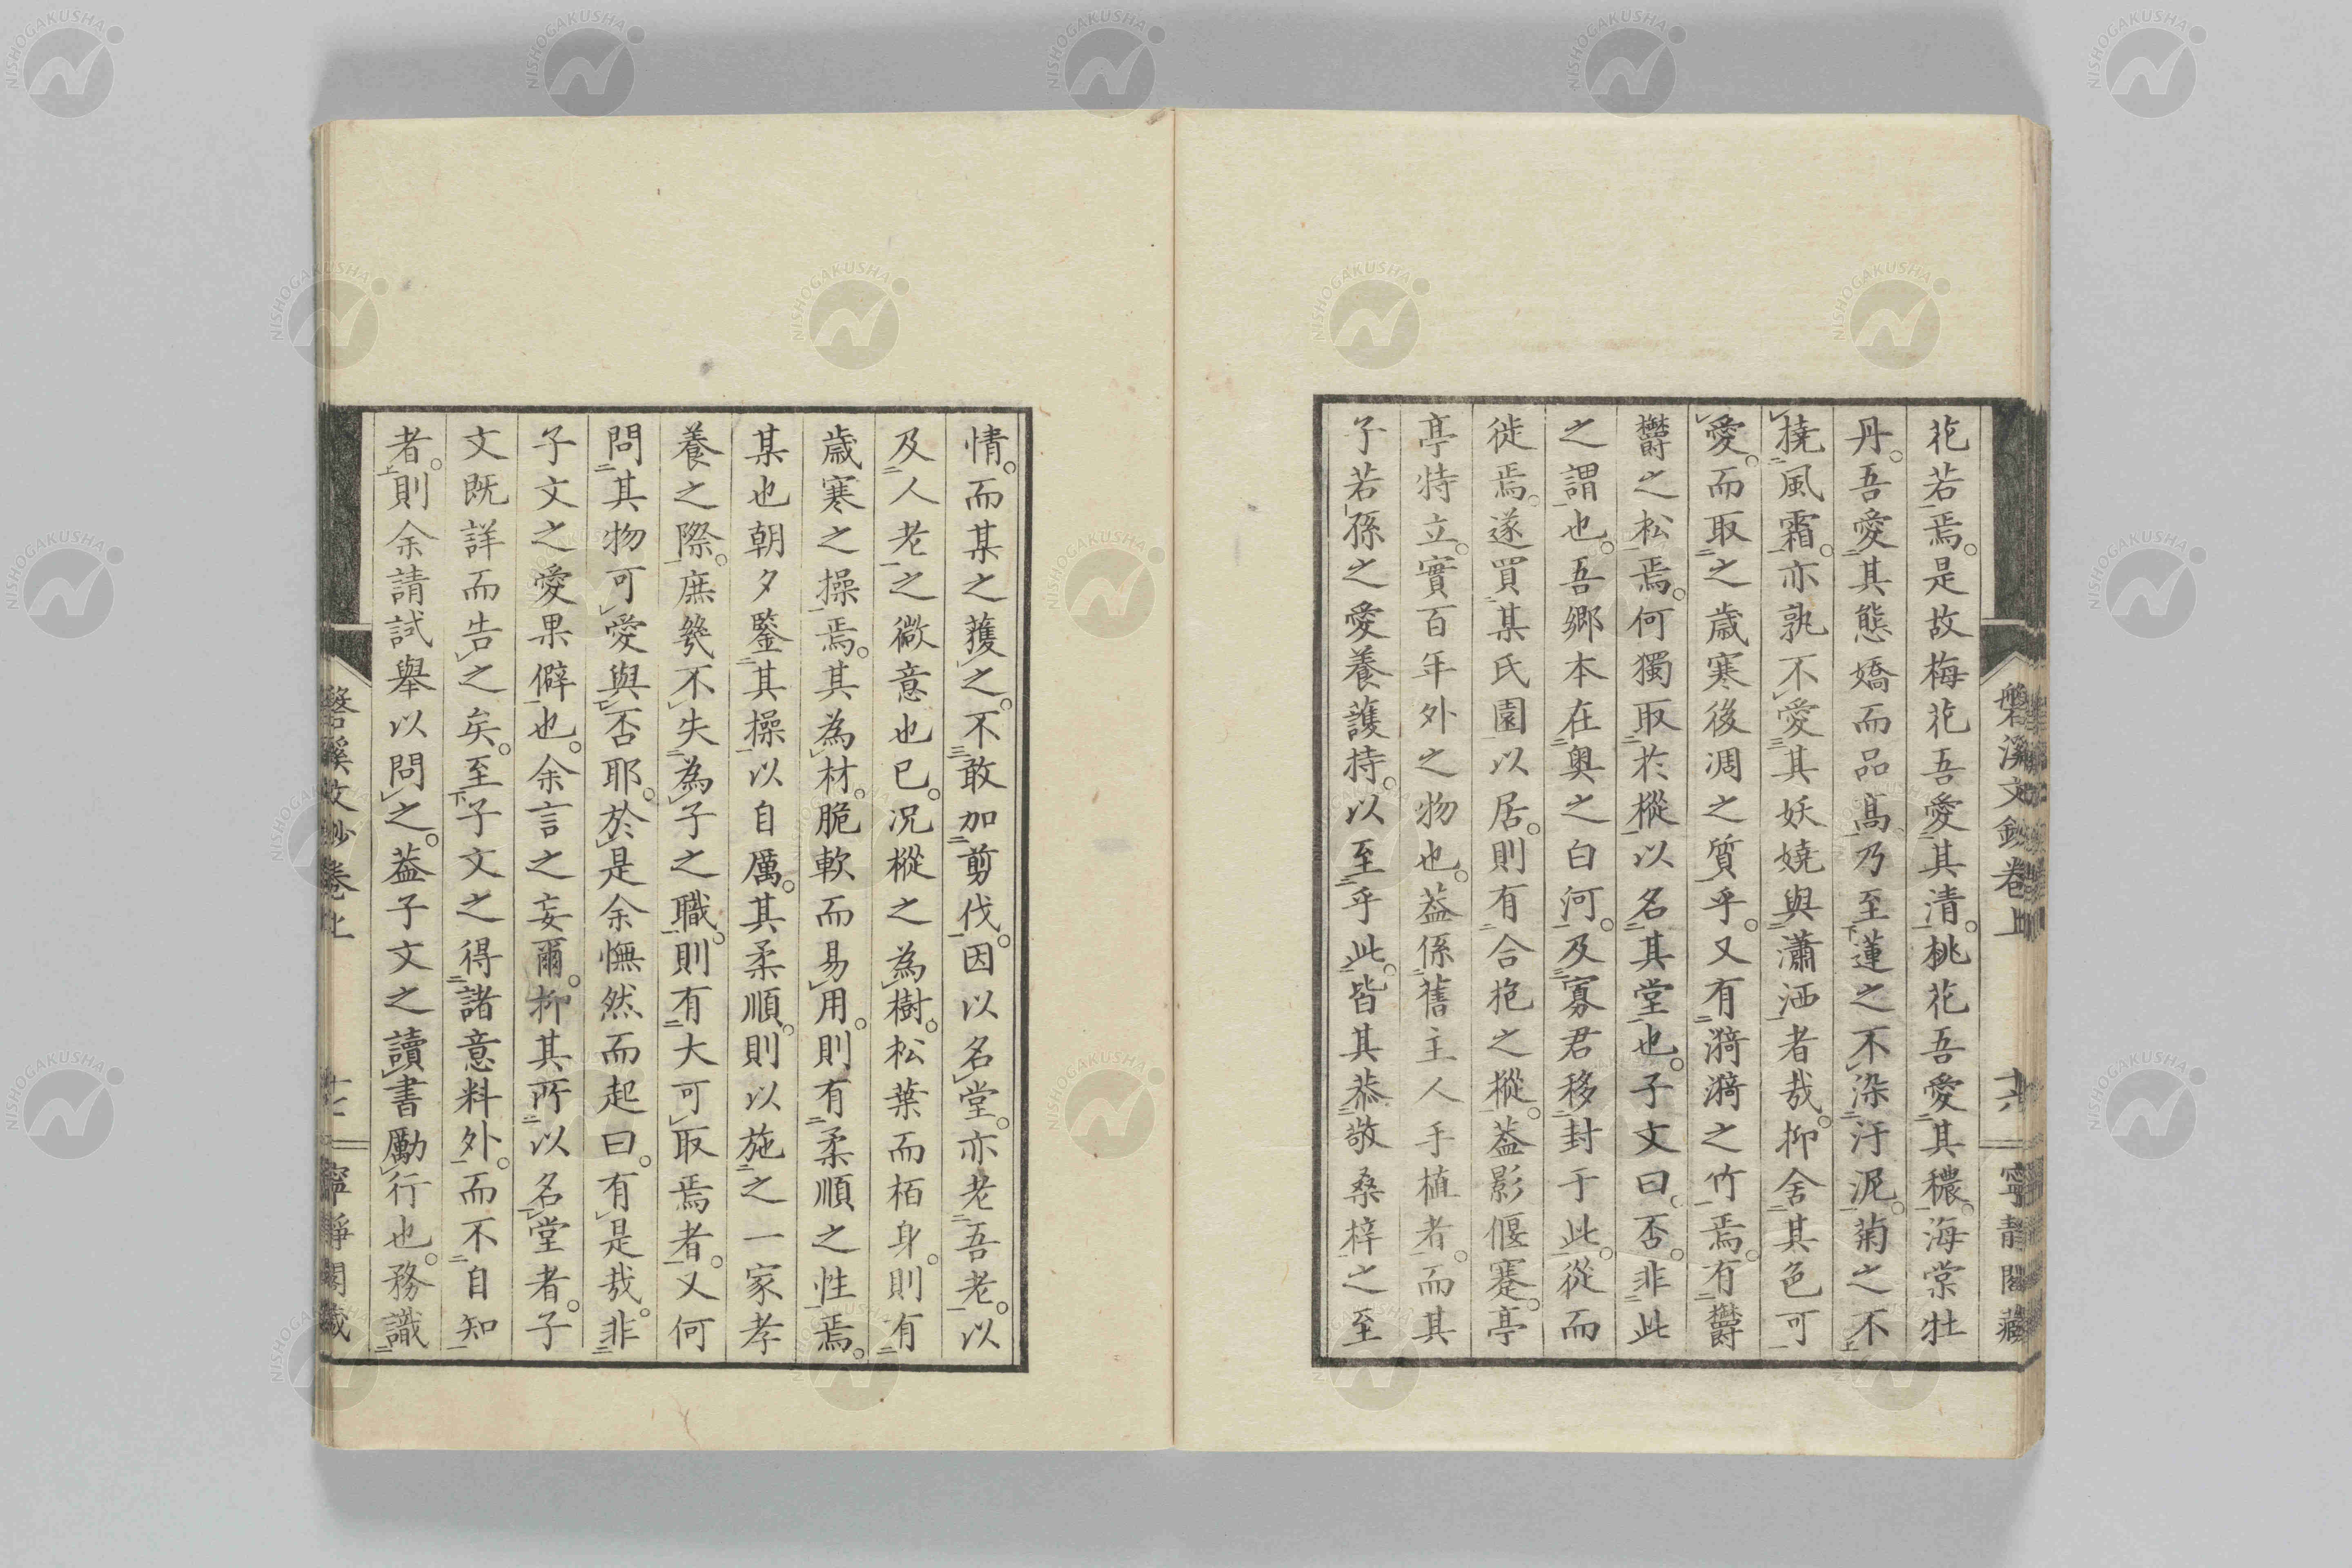 磐溪文鈔卷上 十六 寧靜閣藏
花若焉。是故梅花吾愛其清。桃花吾愛其穠。海棠牡
丹。吾愛其態嬌而品高。乃至蓮之不染汙泥。菊之不
撓風霜。亦孰不愛其妖嬈與瀟洒者哉。抑舍其色可
愛。而取之歲寒後凋之質乎。又有漪漪之竹焉。有欝
欝之松焉。何獨取於樅以名其堂也。子文曰。否。非此
之謂也。吾鄉本在奧之白河。及寡君移封于此。從而
徙焉。遂買某氏園以居。則有合抱之樅。葢影偃蹇。亭
亭特立。實百年外之物也。葢係舊主人手植者。而其
子若孫之愛養護持。以至乎此。皆其恭敬桑梓之至
情。而某之獲之。不敢加剪伐。因以名堂。亦老吾老。以
及人老之微意也已。况樅之為樹。松葉而栢身。則有
歲寒之操焉。其為材。脆軟而易用。則有柔順之性焉。
某也朝夕鑒其操以自厲。其柔順。則以施之一家孝
養之際。庶幾不失為子之職。則有大可取焉者。又何
問其物可愛與否耶。於是余憮然而起曰。有是哉。非
子文之愛果僻也。余言之妄爾。抑其所以名堂者。子
文既詳而告之矣。至子文之得諸意料外。而不自知
者。則余請試舉以問之。葢子文之讀書勵行也。務識
磐溪文鈔卷上 十七 寧靜閣藏
NISHOGAKUSHA